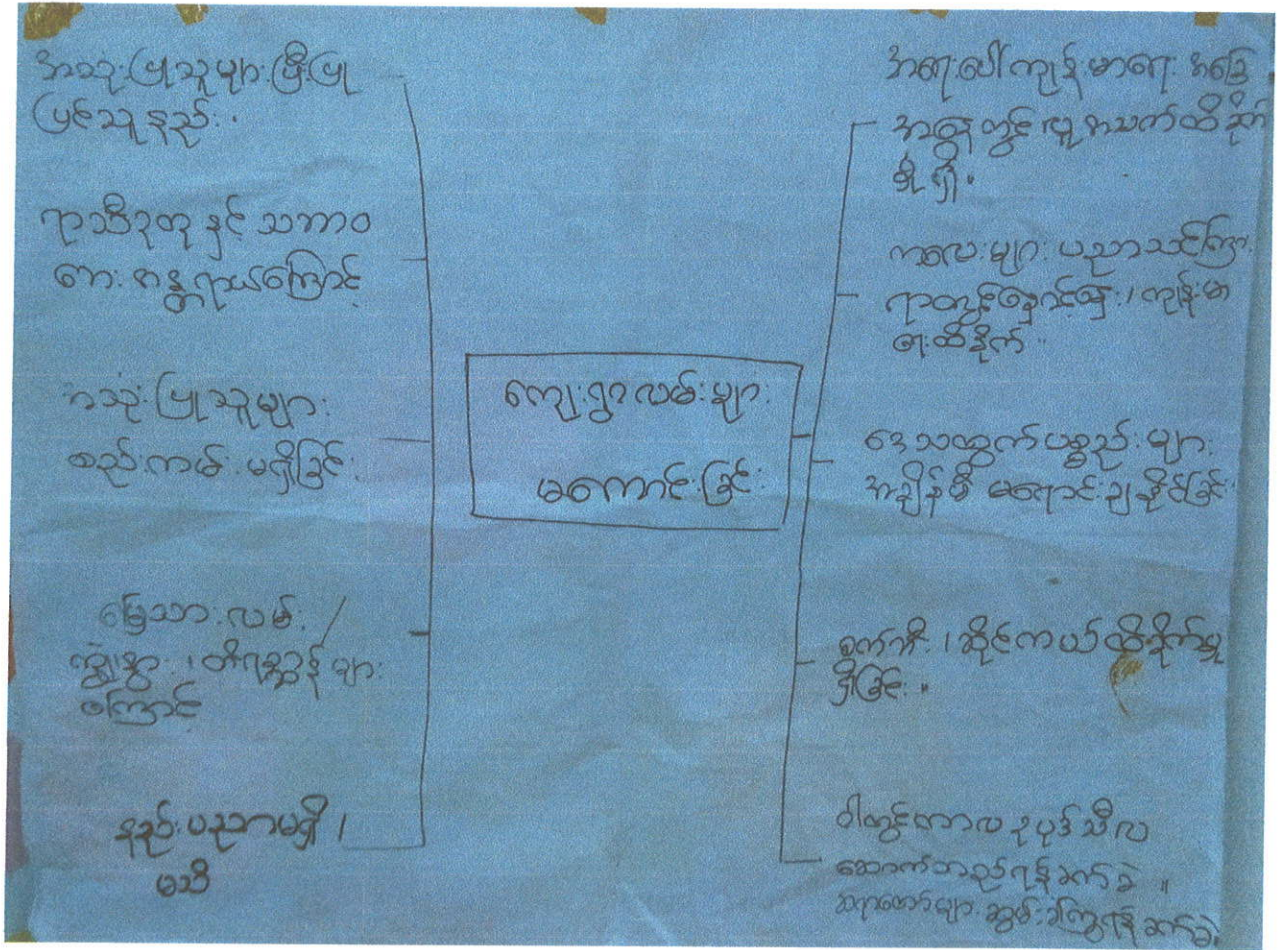 အသုံးပြုသူများပြီးပြု
ပြင်သူနည်း။
ရာသီဥတုနှင့် သဘာဝ
ဘေးအန္တရာယ်ကြောင့်
အသုံးပြုသူများ
စည်းကမ်းမရှိခြင်း
မြေသားလမ်း /
ကျွဲ၊ နွား၊ တိရစ္ဆာန်များ
ကြောင့်
နည်းပညာမရှိ /
မသိ
ကျေးရွာလမ်းများ
မကောင်းခြင်း
အရေးပေါ်ကျန်းမာရေး အခြေ
အနေတွင် လူ့အသက်ထိခိုက်
မှုရှိ။
ကလေးများ ပညာသင်ကြား
ရာတွင်နှောင့်နှေး၊ ကျန်းမာ
ရေးထိခိုက်။
ဒေသထွက်ပစ္စည်းများ
အချိန်မီ မရောင်းချနိုင်ခြင်း
စက်ဘီး၊ ဆိုင်ကယ်ထိခိုက်မှု
ရှိခြင်း။
ဝါတွင်းကာလ ဥပုဒ်သီလ
ဆောက်တည်ရန်ခက်ခဲ။
ဆရာတော်များ ဆွမ်းခံကြွရန် ခက်ခဲ